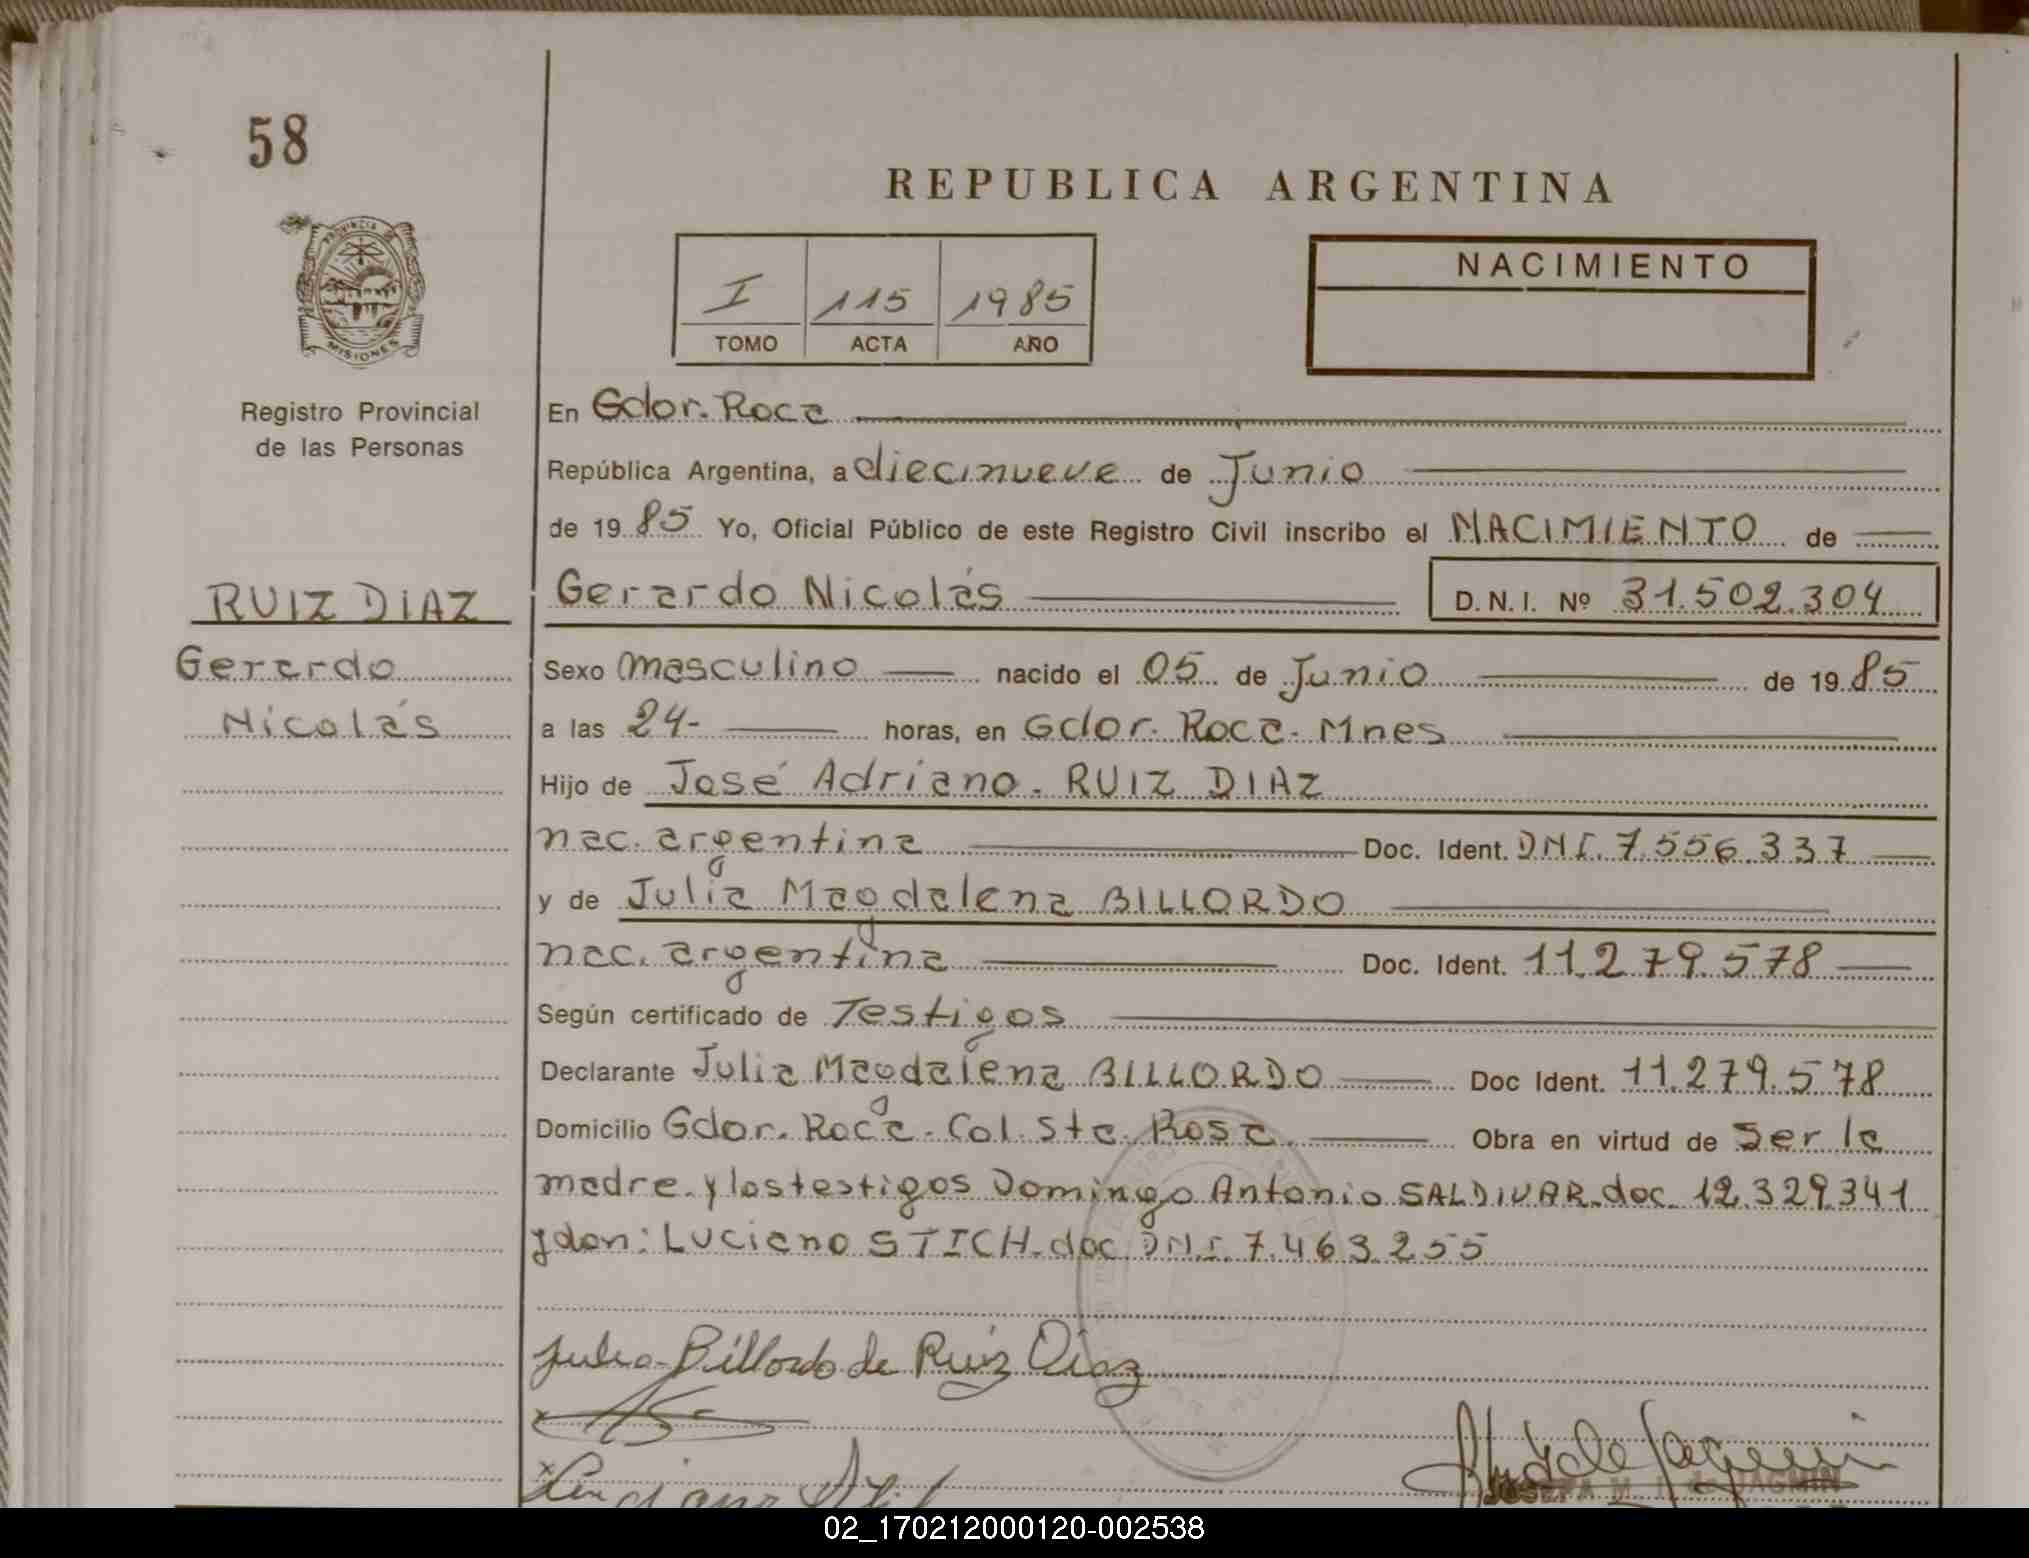 58
REPUBLICA ARGENTINA
PROVINCIA DE
MISIONES
I 115 1985
TOMO ACTA AÑO
NACIMIENTO
Registro Provincial
de las Personas
En Gdor. Roca
República Argentina, a diecinueve de Junio
de 1985 Yo, Oficial Público de este Registro Civil inscribo el NACIMIENTO de
RUIZ DIAZ
Gerardo
Nicolás
Gerardo Nicolás D.N.I. Nº 31.502.304
Sexo masculino nacido el 05 de Junio de 1985
a las 24- horas, en Gdor. Roca. Mnes
Hijo de José Adriano. RUIZ DIAZ
nac. argentina Doc. Ident. DNI. 7.556.337
y de Julia Magdalena BILLORDO
nac. argentina Doc. Ident. 11.279.578
Según certificado de Testigos
Declarante Julia Magdalena BILLORDO Doc Ident. 11.279.578
Domicilio Gdor. Roca. Col. Sta. Rosa Obra en virtud de Ser la
madre. y los testigos Domingo Antonio SALDIVAR. doc. 12.329.341
y don: Luciano STICH. doc DNI. 7.463.255
Julia Billordo de Ruiz Diaz
JOSEFA M. J. de JAGMIN
02_170212000120-002538